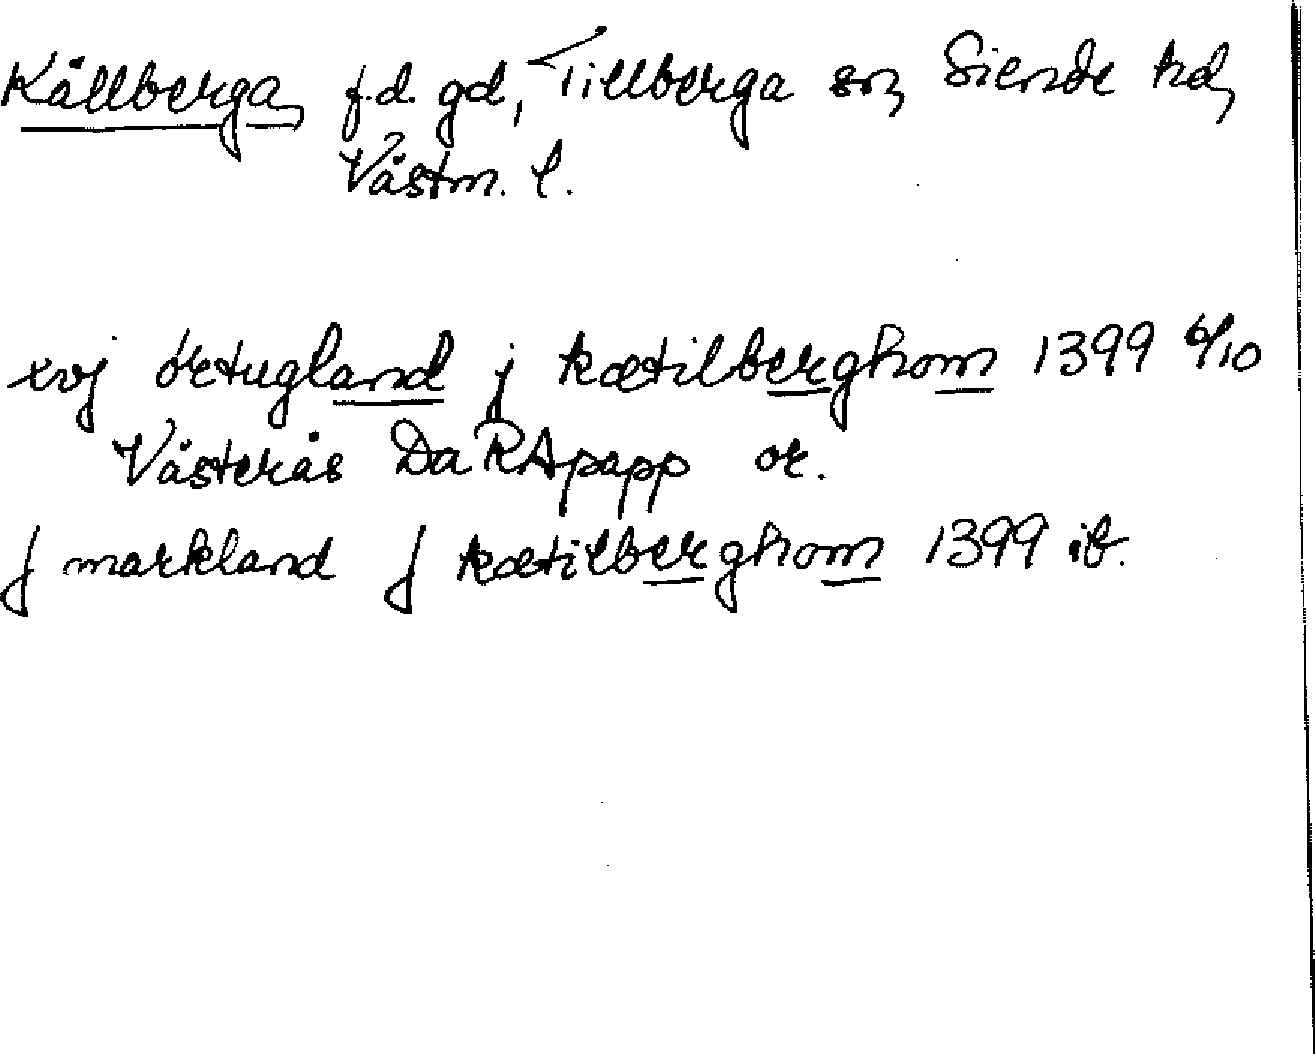 Källberga, f.d. gd, Tillberga sn, Siende hd,
Västm. l.
xvj ørtugland j kætilberghom 1399 6/10
Västerås Da RApapp or.
J markland J kætilberghom 1399 ib.